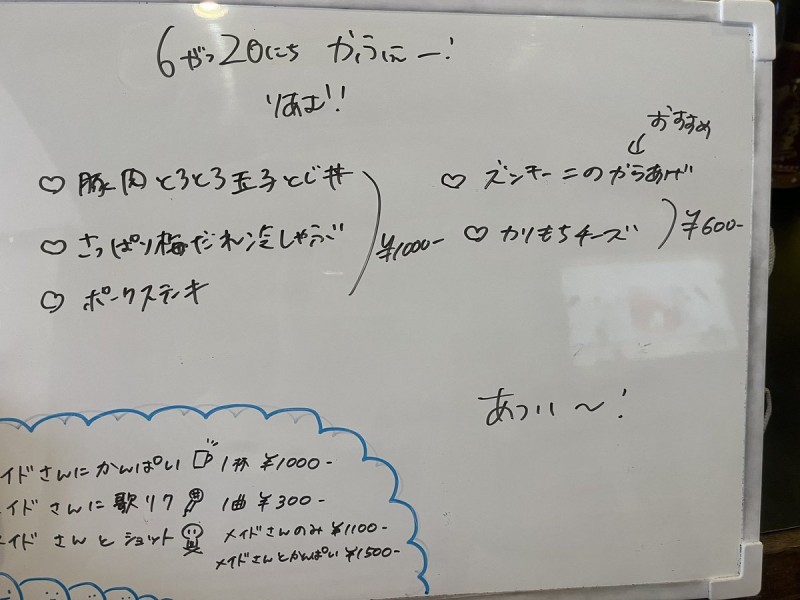 6がつ20にち かうんたー!
りあむ!!
♡ 豚肉とろとろ玉子とじ丼
♡ さっぱり梅だれ冷しゃぶ
♡ ポークステーキ
¥1000-
おすすめ
♡ ズッキーニのからあげ
♡ カリもちチーズ
¥600-
あつい〜!
イドさんにかんぱい 1杯 ¥1000-
イドさんに歌リク 1曲 ¥300-
イドさんとショット メイドさんのみ ¥1100-
メイドさんとかんぱい ¥1500-